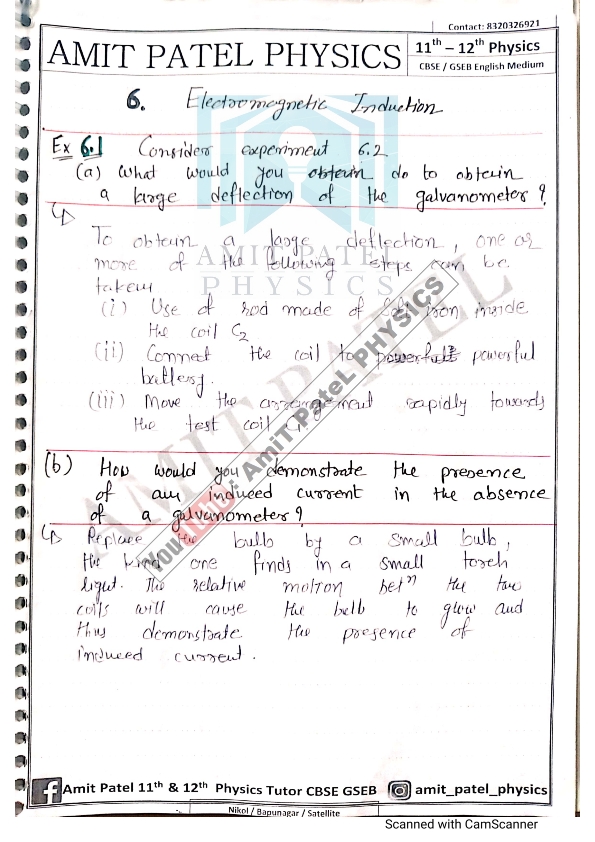 Contact: 8320326921
AMIT PATEL PHYSICS
11th – 12th Physics
CBSE / GSEB English Medium
6. Electromagnetic Induction
Ex 6.1 Consider experiment 6.2
(a) What would you obtain do to obtain
a large deflection of the galvanometer?
To obtain a large deflection, one or
more of the following steps can be
taken
(i) Use of rod made of soft iron inside
the coil C2
(ii) Connect the coil to powerful powerful
battery.
(iii) Move the arrangement rapidly towards
the test coil C1
(b) How would you demonstrate the presence
of an induced current in the absence
of a galvanometer?
Replace the bulb by a small bulb,
the kind one finds in a small torch
light. The relative motion betn the two
coils will cause the bulb to glow and
thus demonstrate the presence of
induced current.
AMIT PATEL
PHYSICS
AMIT PATEL
YouTube: AmiT PateL PHYSICS
Amit Patel 11th & 12th Physics Tutor CBSE GSEB
amit_patel_physics
Nikol / Bapunagar / Satellite
Scanned with CamScanner